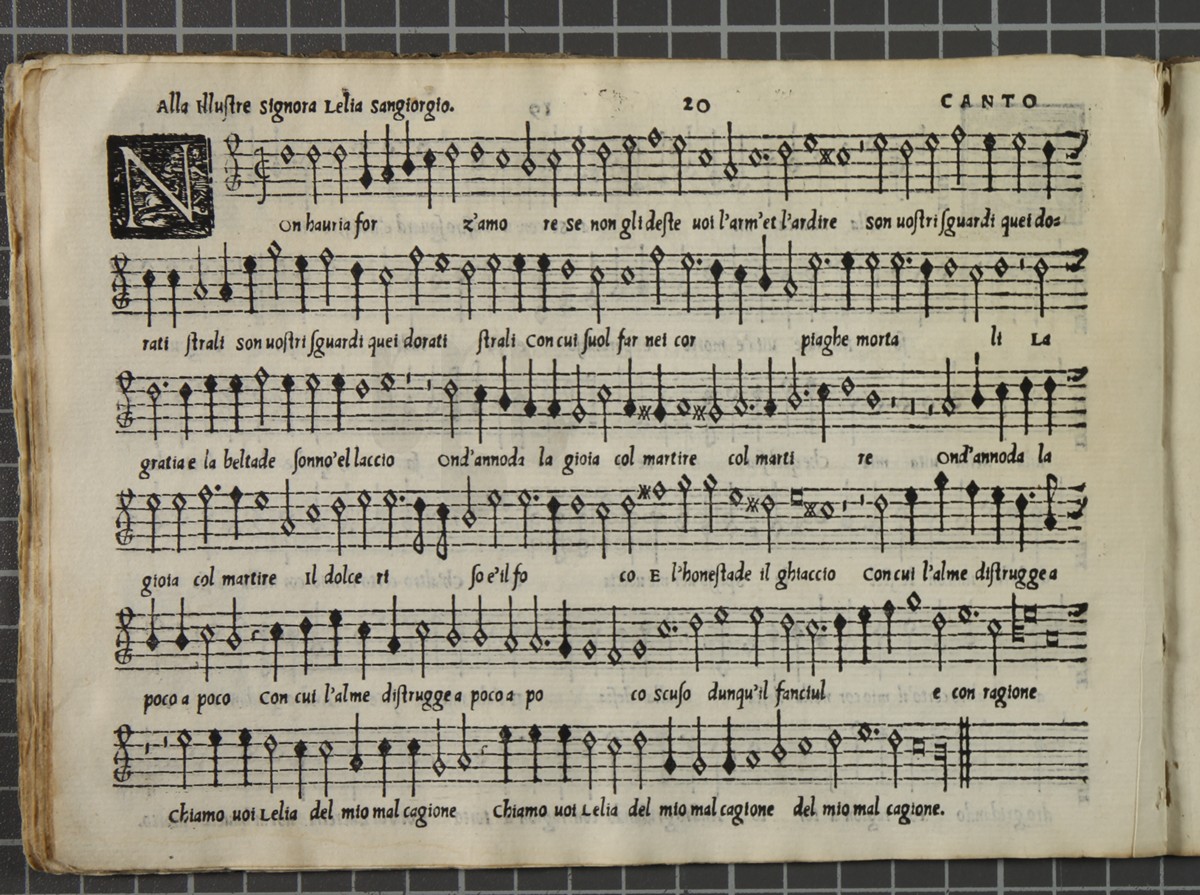 Alla Illuſtre Signora Lelia Sangiorgio. 20 CANTO
NOn hauria for z'amo re se non gli deſte uoi l'arm'et l'ardire son uoſtri ſguardi quei do=
rati ſtrali Son uoſtri ſguardi quei dorati ſtrali Con cui ſuol far nei cor piaghe morta li La
gratia e la beltade ſonno'el laccio Ond'annoda la gioia col martire col marti re Ond'annoda la
gioia col martire Il dolce ri ſo e'il fo co E l'honeſtade il ghiaccio Con cui l'alme diſtrugge a
poco a poco Con cui l'alme diſtrugge a poco a po co scuſo dunqu'il fanciul e con ragione
Chiamo uoi Lelia del mio mal cagione Chiamo uoi Lelia del mio mal cagione del mio mal cagione.